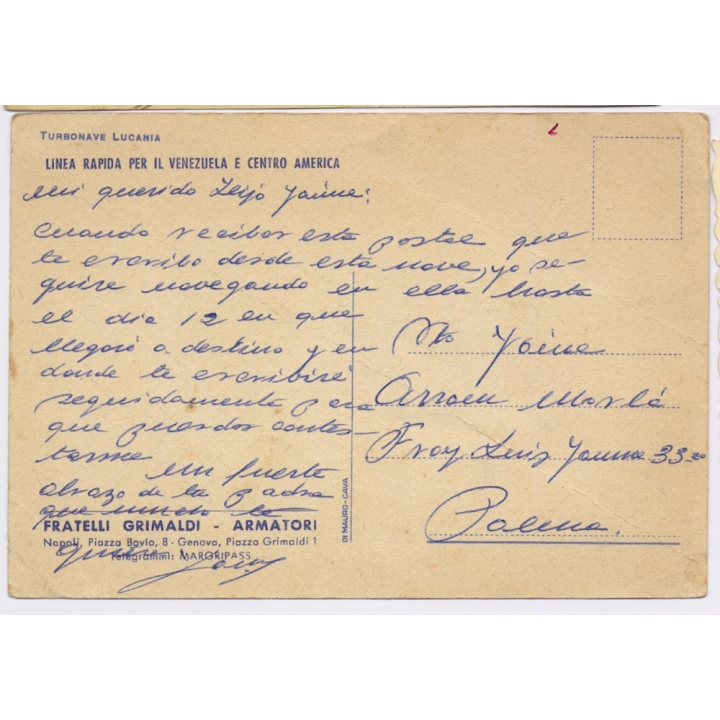 TURBONAVE LUCANIA
LINEA RAPIDA PER IL VENEZUELA E CENTRO AMERICA
Mi querido Jaime:
Cuando recibas esta postal que
te escribo desde esta nave, yo se-
guire navegando en ella hasta
el dia 12 en que
llegaré a destino y en
donde te escribiré
seguidamente para
que puedas contes-
tarme
Un fuerte
abrazo de tu padre
que mucho te
FRATELLI GRIMALDI - ARMATORI
Napoli, Piazza Bovio, 8 - Genova, Piazza Grimaldi 1
Telegrammi: MARGRIPASS
quiere
DI MAURO-CAVA
Jaime
Arrom
Fray Luis Jaume 33-2º
Palma.